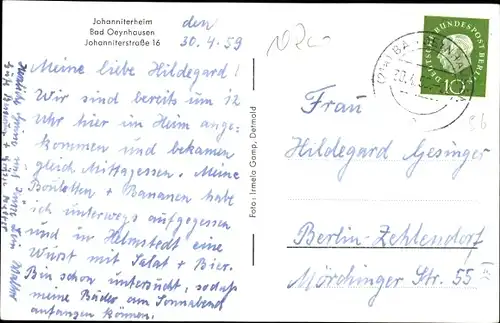 Johanniterheim
Bad Oeynhausen
Johanniterstraße 16
den
30.4.59
Meine liebe Hildegard!
Wir sind bereits um 12
Uhr hier im Heim ange-
kommen und bekamen
gleich Mittagessen. Meine
Bouletten + Bananen habe
ich unterwegs aufgegessen
und in Helmstedt eine
Wurst mit Salat + Bier.
Bin schon untersucht, sodaß
meine Bäder am Sonnabend
anfangen können.
Foto: Irmela Gamp, Detmold
DEUTSCHE BUNDESPOST BERLIN
10
Frau
Hildegard Gesinger
Berlin-Zehlendorf
Mörchinger Str. 55